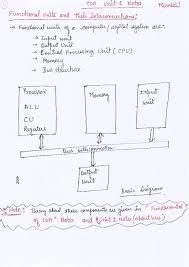 COA Unit-1 Notes
Functional Units and Their Interconnections:
→ Functional Units of a computer/digital system are:
→ Input unit
→ Output Unit
→ Central Processing Unit (CPU)
→ Memory
→ Bus structure
Processor
ALU
CU
Registers
Memory
Input
Unit
Bus Interconnection
Output
Unit
Basic Diagram
Note: Theory about these components are given in "Fundamentals
of COA" Notes and Unit 1 Notes